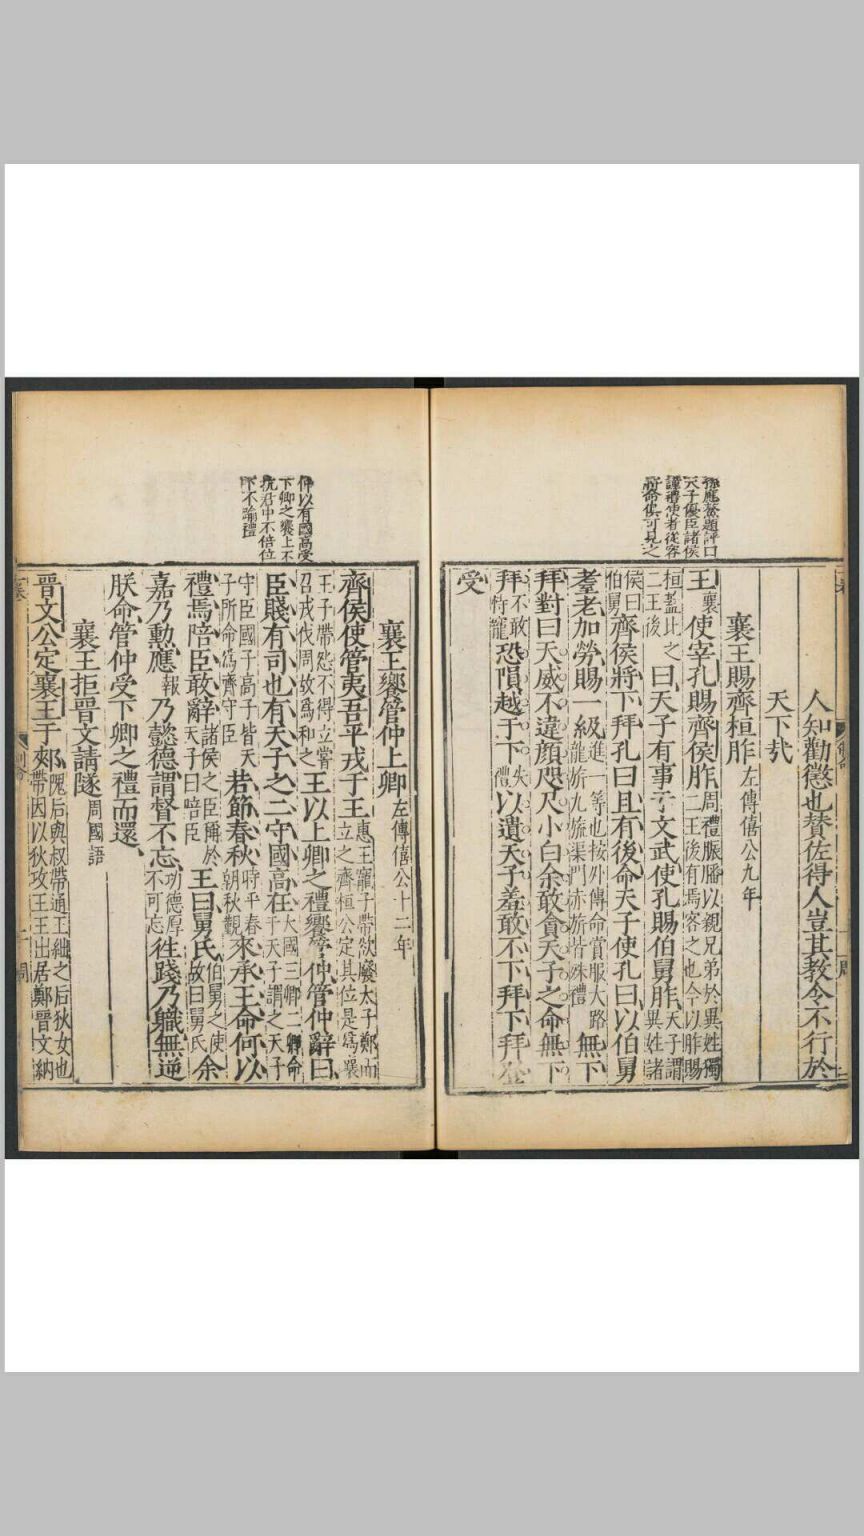 孫應鰲題評曰
天子優臣諸侯
謹禮使者從容
將命俱可見之
人知勸懲也贊佐得人豈其教令不行於
天下哉
襄王賜齊桓胙左傳僖公九年
王襄使宰孔賜齊侯胙周禮脤膰以親兄弟於異姓獨二王後有焉客之也今以胙賜
桓蓋比之二王後曰天子有事于文武使孔賜伯舅胙天子謂異姓諸
侯曰伯舅齊侯將下拜孔曰且有後命天子使孔曰以伯舅
耋老加勞賜一級進一等也按外傳命賞服大路龍旂九旒渠門赤旂皆殊禮無下
拜對曰天威不違顏咫尺小白余敢貪天子之命無下
拜不敢特寵恐隕越于下失禮以遺天子羞敢不下拜下拜登
受
仲以有國高受
下卿之饗上不
抗君中不倍位
下不踰禮
襄王饗管仲上卿左傳僖公十二年
齊侯使管夷吾平戎于王惠王寵子帶欲廢太子鄭而立之齊桓公定其位是爲襄
王子帶怨不得立嘗召戎伐周故爲和之王以上卿之禮饗管仲管仲辭曰
臣賤有司也有天子之二守國高在大國三卿二卿命于天子謂之天子
守臣國子高子皆天子所命爲齊守臣若節春秋時平春朝秋覲來承王命何以
禮焉陪臣敢辭諸侯之臣稱於天子曰陪臣王曰舅氏伯舅之使故曰舅氏余
嘉乃勲應報乃懿德謂督不忘功德厚不可忘徃踐乃職無逆
朕命管仲受下卿之禮而還
襄王拒晋文請隧周國語
晋文公定襄王于郟隗后與叔帶通王絀之后狄女也帶因以狄攻王王出居鄭晋文納